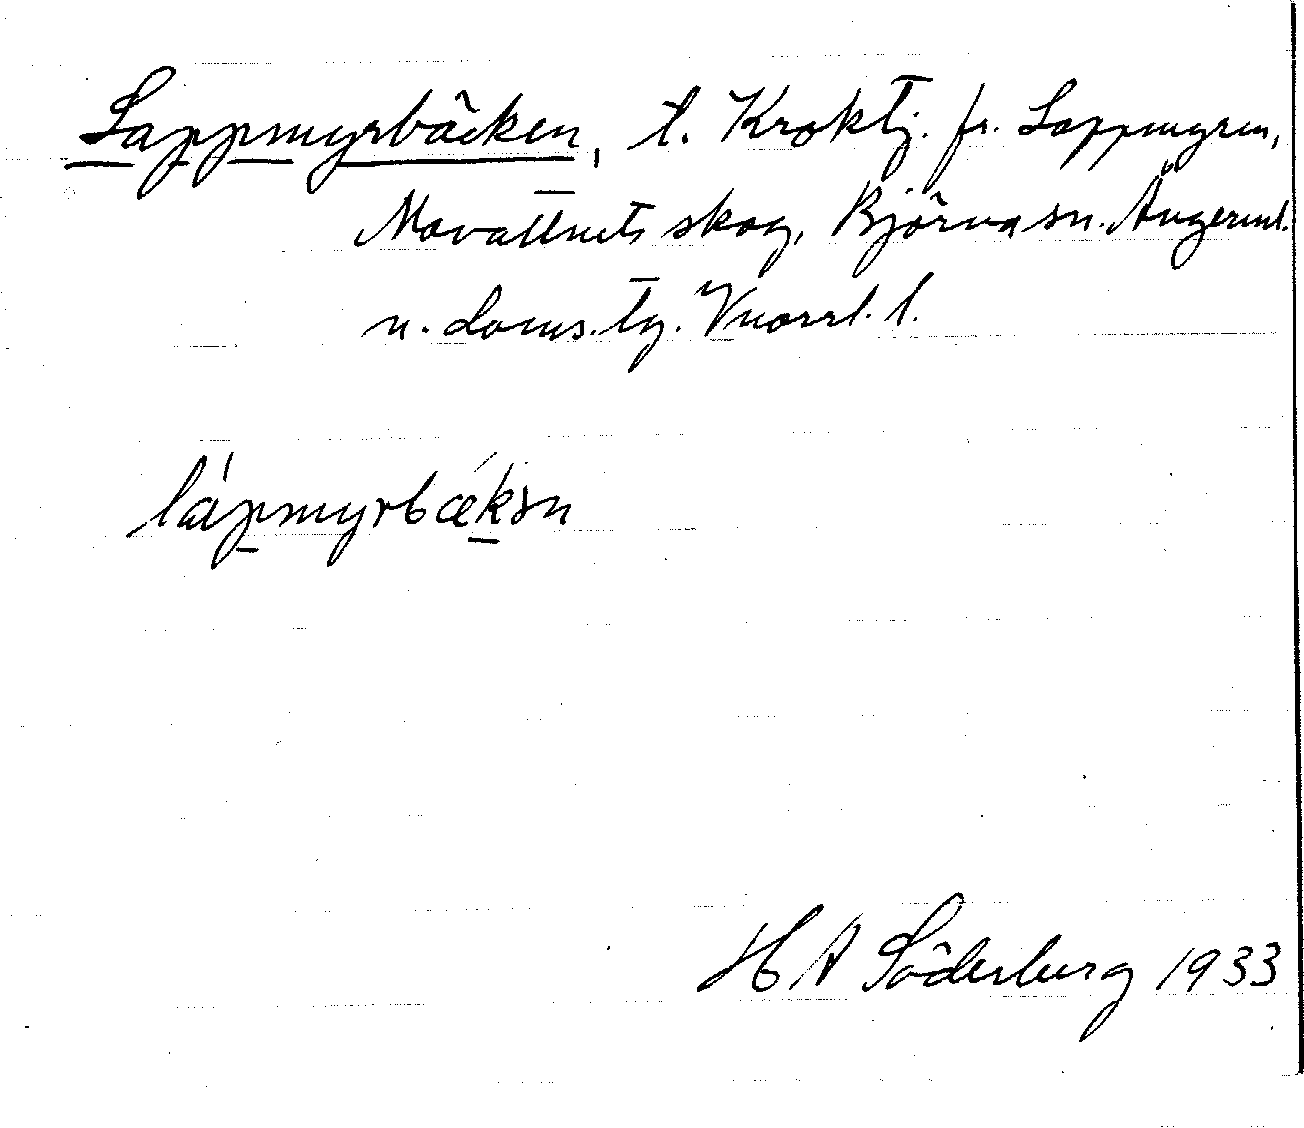 Lappmyrbäcken, t. Kroktj. fr. Lappmyren,
Movattnets skog, Björna sn. Ångerml.
n. doms.
lápmyrbækən
H A Söderberg 1933